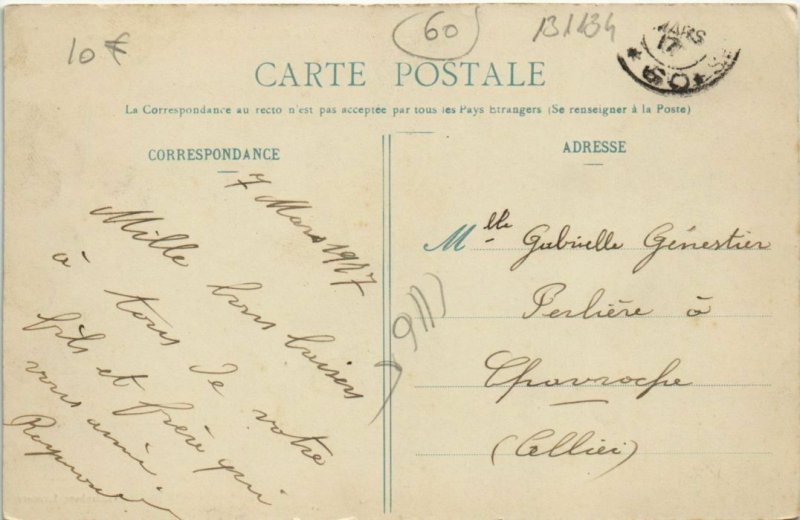 10 €
60
131134
MARS
17
60
CARTE POSTALE
La Correspondance au recto n'est pas acceptée par tous les Pays Etrangers (Se renseigner à la Poste)
CORRESPONDANCE
7 Mars 1917
Mille bons baisers
à tous De votre
fils et frère qui
vous aime
ADRESSE
Mlle Gabrielle Génestier
Perlière à
Chavroche
(Allier)
1917